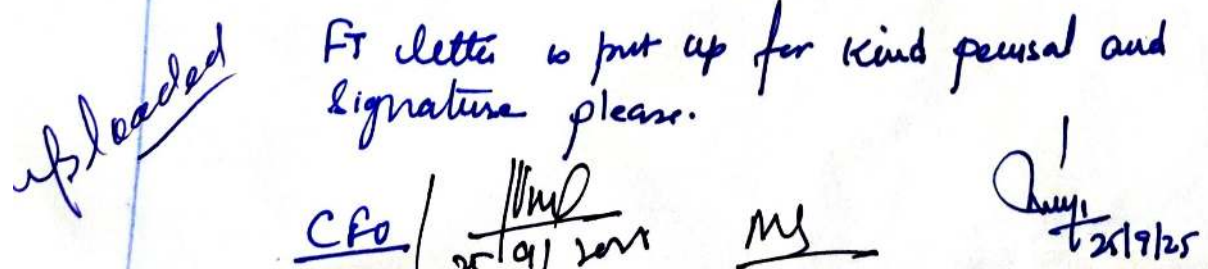 uploaded
FT letter is put up for kind perusal and
Signature please.
CFO
25/9/2025
MS
25/9/25